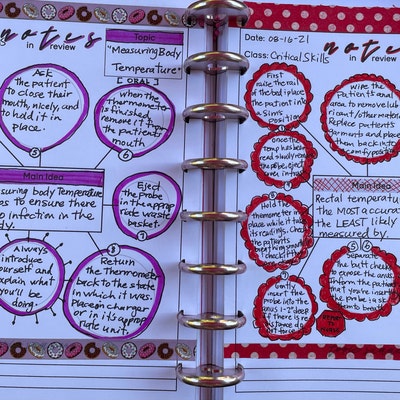 notes
in review
Topic
"Measuring Body
Temperature"
[ORAL]
Ask
the patient
to close their
mouth, nicely, and
to hold it in
place.
5
when the
thermometer
is finished,
remove it from
the patients
mouth
6
Main Idea
body Temperature
to ensure there
infection in the
Eject
the probe
in the approp
riate waste
basket.
7
Always
introduce
yourself and
explain what
you'll be
doing.
8
Return
the Thermometer
back to the state
in which it was.
Place on charger
or in its approp
riate unit.
Date: 08-16-21
Class: Critical Skills
notes
in review
First
raise the rail
of the bed & place
the patient into
a Sims
position
once the
temp has been
read
probe, eject
Wipe the
Patients anal
area to remove lub
ricant/other materi
Replace patients
garments and place
them back into
Main Idea
Rectal temperatur
the MOST accurate
the LEAST likely
measured by.
Hold the
thermometer in
place while it takes
its readings. Check
the patients
6
5
Separate
the butt cheeks
to expose the anus
Inform the patient
Gently
insert the
probe into the
anus 1-2" deep
if there is re